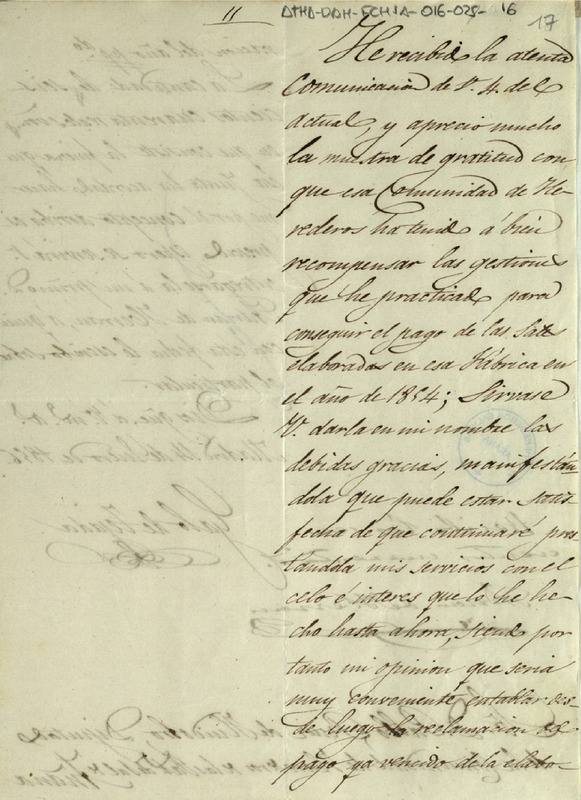 11
ATHA-DAH-FCHSA-016-025-16
17
He recibido la atenta
Comunicacion de V. 4. del
actual, y aprecio mucho
la muestra de gratitud con
que esa Comunidad de He-
rederos ha tenido á bien
recompensar las gestiones
que he practicado para
conseguir el pago de las Sales
elaboradas en esa Fábrica en
el año de 1854; Sirvase
V. darla en mi nombre las
debidas gracias, manifestán
dola que puede estar satis
fecha de que continuaré pres
tándola mis servicios con el
celo é interes que lo he he
cho hasta ahora, siendo por
tanto mi opinion que seria
muy conveniente entablar des-
de luego la reclamacion del
pago ya vencido de la elabo-